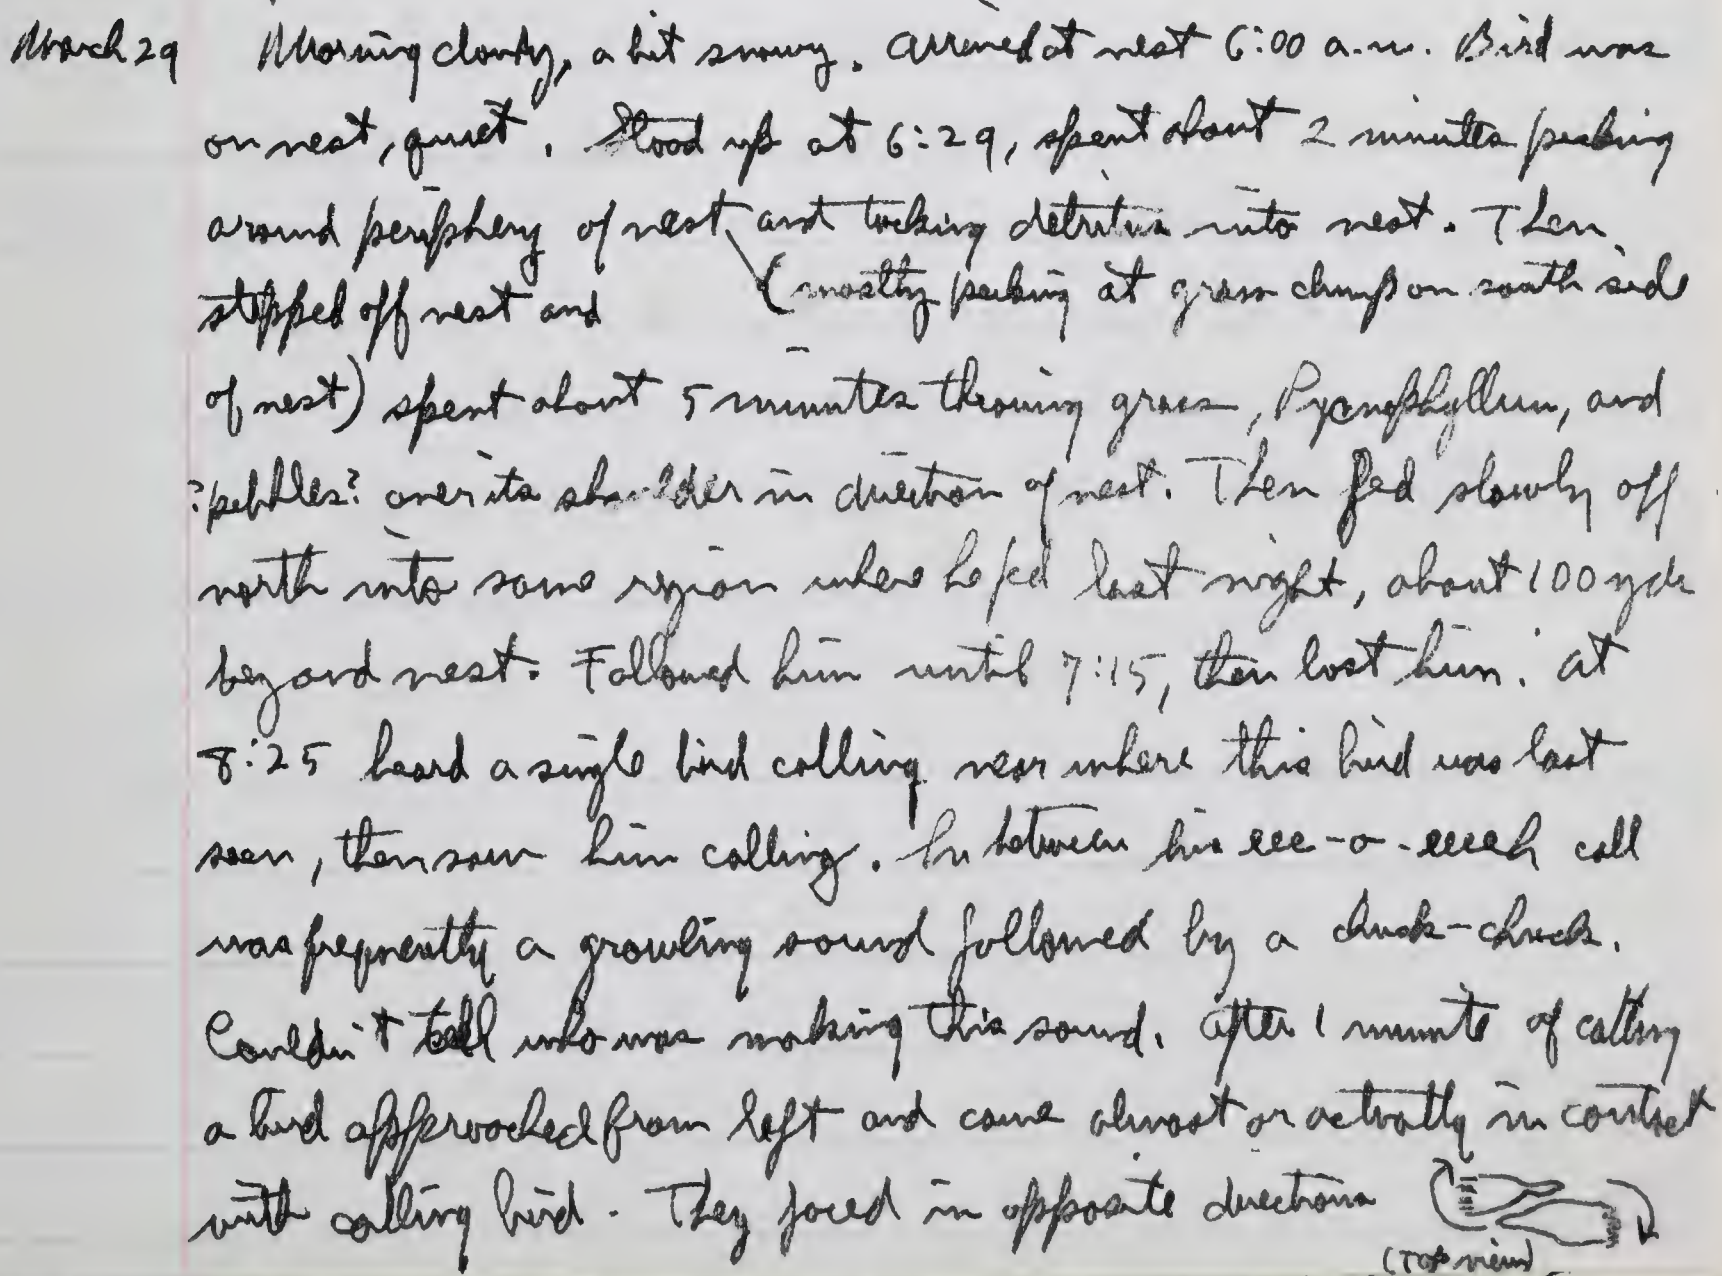 March 29 Morning cloudy, a bit snowy. Arrived at nest 6:00 a.m. Bird was
on nest, quiet. Stood up at 6:29, spent about 2 minutes pecking
around periphery of nest and tucking detritus into nest. Then
stepped off nest and (mostly pecking at grass clump on south side
of nest) spent about 5 minutes throwing grass, Pycnophyllum, and
?pebbles? over its shoulder in direction of nest. Then fed slowly off
north into same region where he fed last night, about 100 yds
beyond nest. Followed him until 7:15, then lost him. At
8:25 heard a single bird calling near where this bird was last
seen, then saw him calling. In between his eee-o-eeeeh call
was frequently a growling sound followed by a chuck-chuck.
Couldn't tell who was making this sound. After 1 minute of calling
a bird approached from left and came almost or actually in contact
with calling bird. They faced in opposite directions
(Top view)